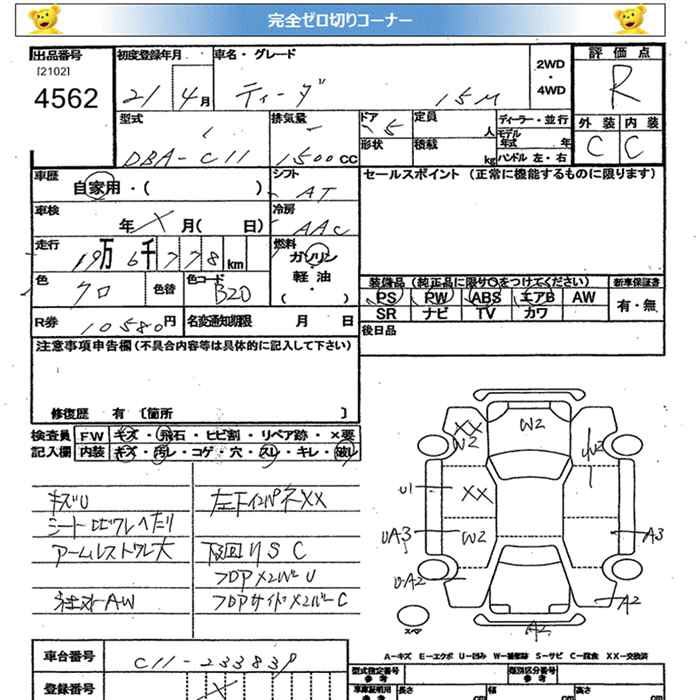 完全ゼロ切りコーナー
出品番号 初度登録年月 車名・グレード 2WD・4WD 評価点
[2102]
4562 21 4月 ティーダ 15M R
型式 排気量 ドア 定員 ディーラー・並行 外装 内装
DBA-C11 1500CC 5 人 モデル年式 年 C C
形状 積載 kg ハンドル 左・右
車歴 シフト セールスポイント (正常に機能するものに限ります)
自家用・( ) AT
車検 冷房
年 月( 日) AAC
走行 燃料
19万 6千 7 7 8 km ガソリン・軽油・( )
色 色替 色コード 装備品 (純正品に限り○をつけてください) 新車保証書
クロ B20 PS PW ABS エアB AW 有・無
SR ナビ TV カワ
R券 10580円 名変通知期限 月 日 後日品
注意事項申告欄 (不具合内容等は具体的に記入して下さい)
修復歴 有 〔箇所 〕
検査員 FW キズ・飛石・ヒビ割・リペア跡・×要
記入欄 内装 キズ・汚レ・コゲ・穴・スレ・キレ・破レ
キズU 左下インパネXX
シート ヘタリ
アームレストワレ大 下回りSC
フロアメンバーU
AW フロアサイドメンバーC
XX W2 W2 U2
U1 XX
UA3 W2 A3
UA2 A2
スペア A2
A-キズ E-エクボ U-凹み W-補修跡 S-サビ C-腐食 XX-交換済
車台番号 C11-233839
型式指定番号 参考 類別区分番号 参考
登録番号 車庫証明用 参考 長さ cm 幅 cm 高さ cm